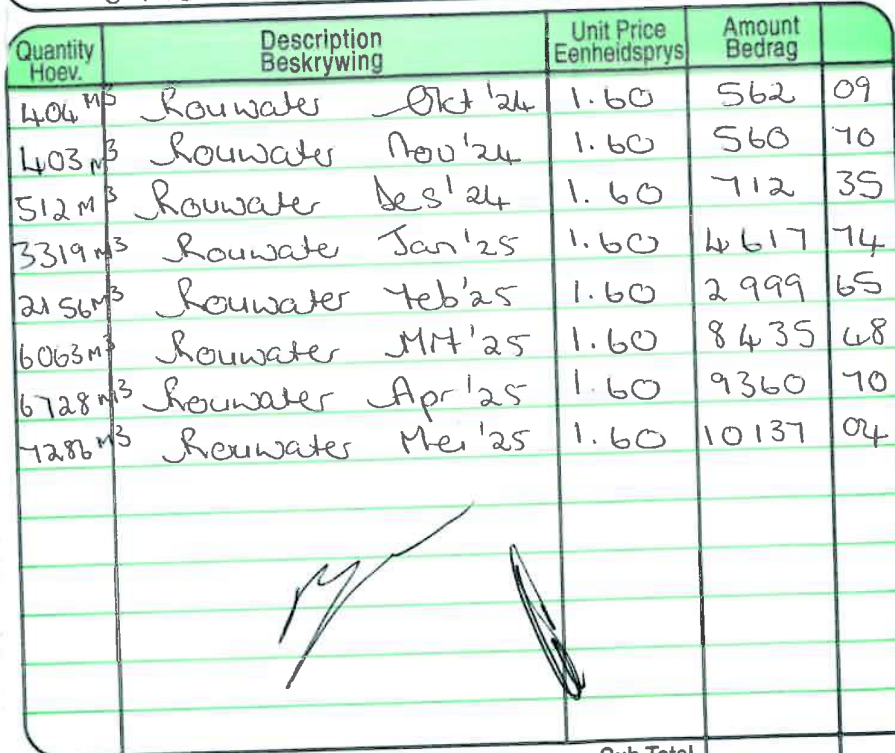 Quantity Hoev. Description Beskrywing Unit Price Eenheidsprys Amount Bedrag
404 M3 Rouwater Okt '24 1.60 562 09
403 M3 Rouwater Nov '24 1.60 560 70
512 M3 Rouwater Des '24 1.60 712 35
3319 M3 Rouwater Jan '25 1.60 4617 74
2156 M3 Rouwater Feb '25 1.60 2999 65
6063 M3 Rouwater Mrt '25 1.60 8435 48
6728 M3 Rouwater Apr '25 1.60 9360 70
7286 M3 Rouwater Mei '25 1.60 10137 04
Sub Total